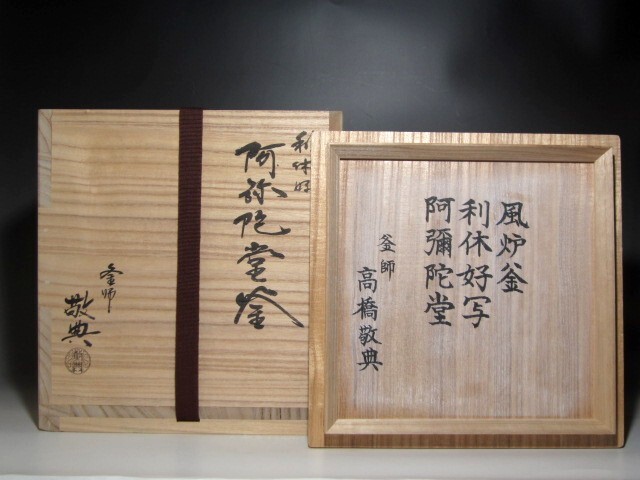 利休好
阿弥陀堂釜
釜師
敬典
風炉釜
利休好写
阿彌陀堂
釜師
高橋敬典